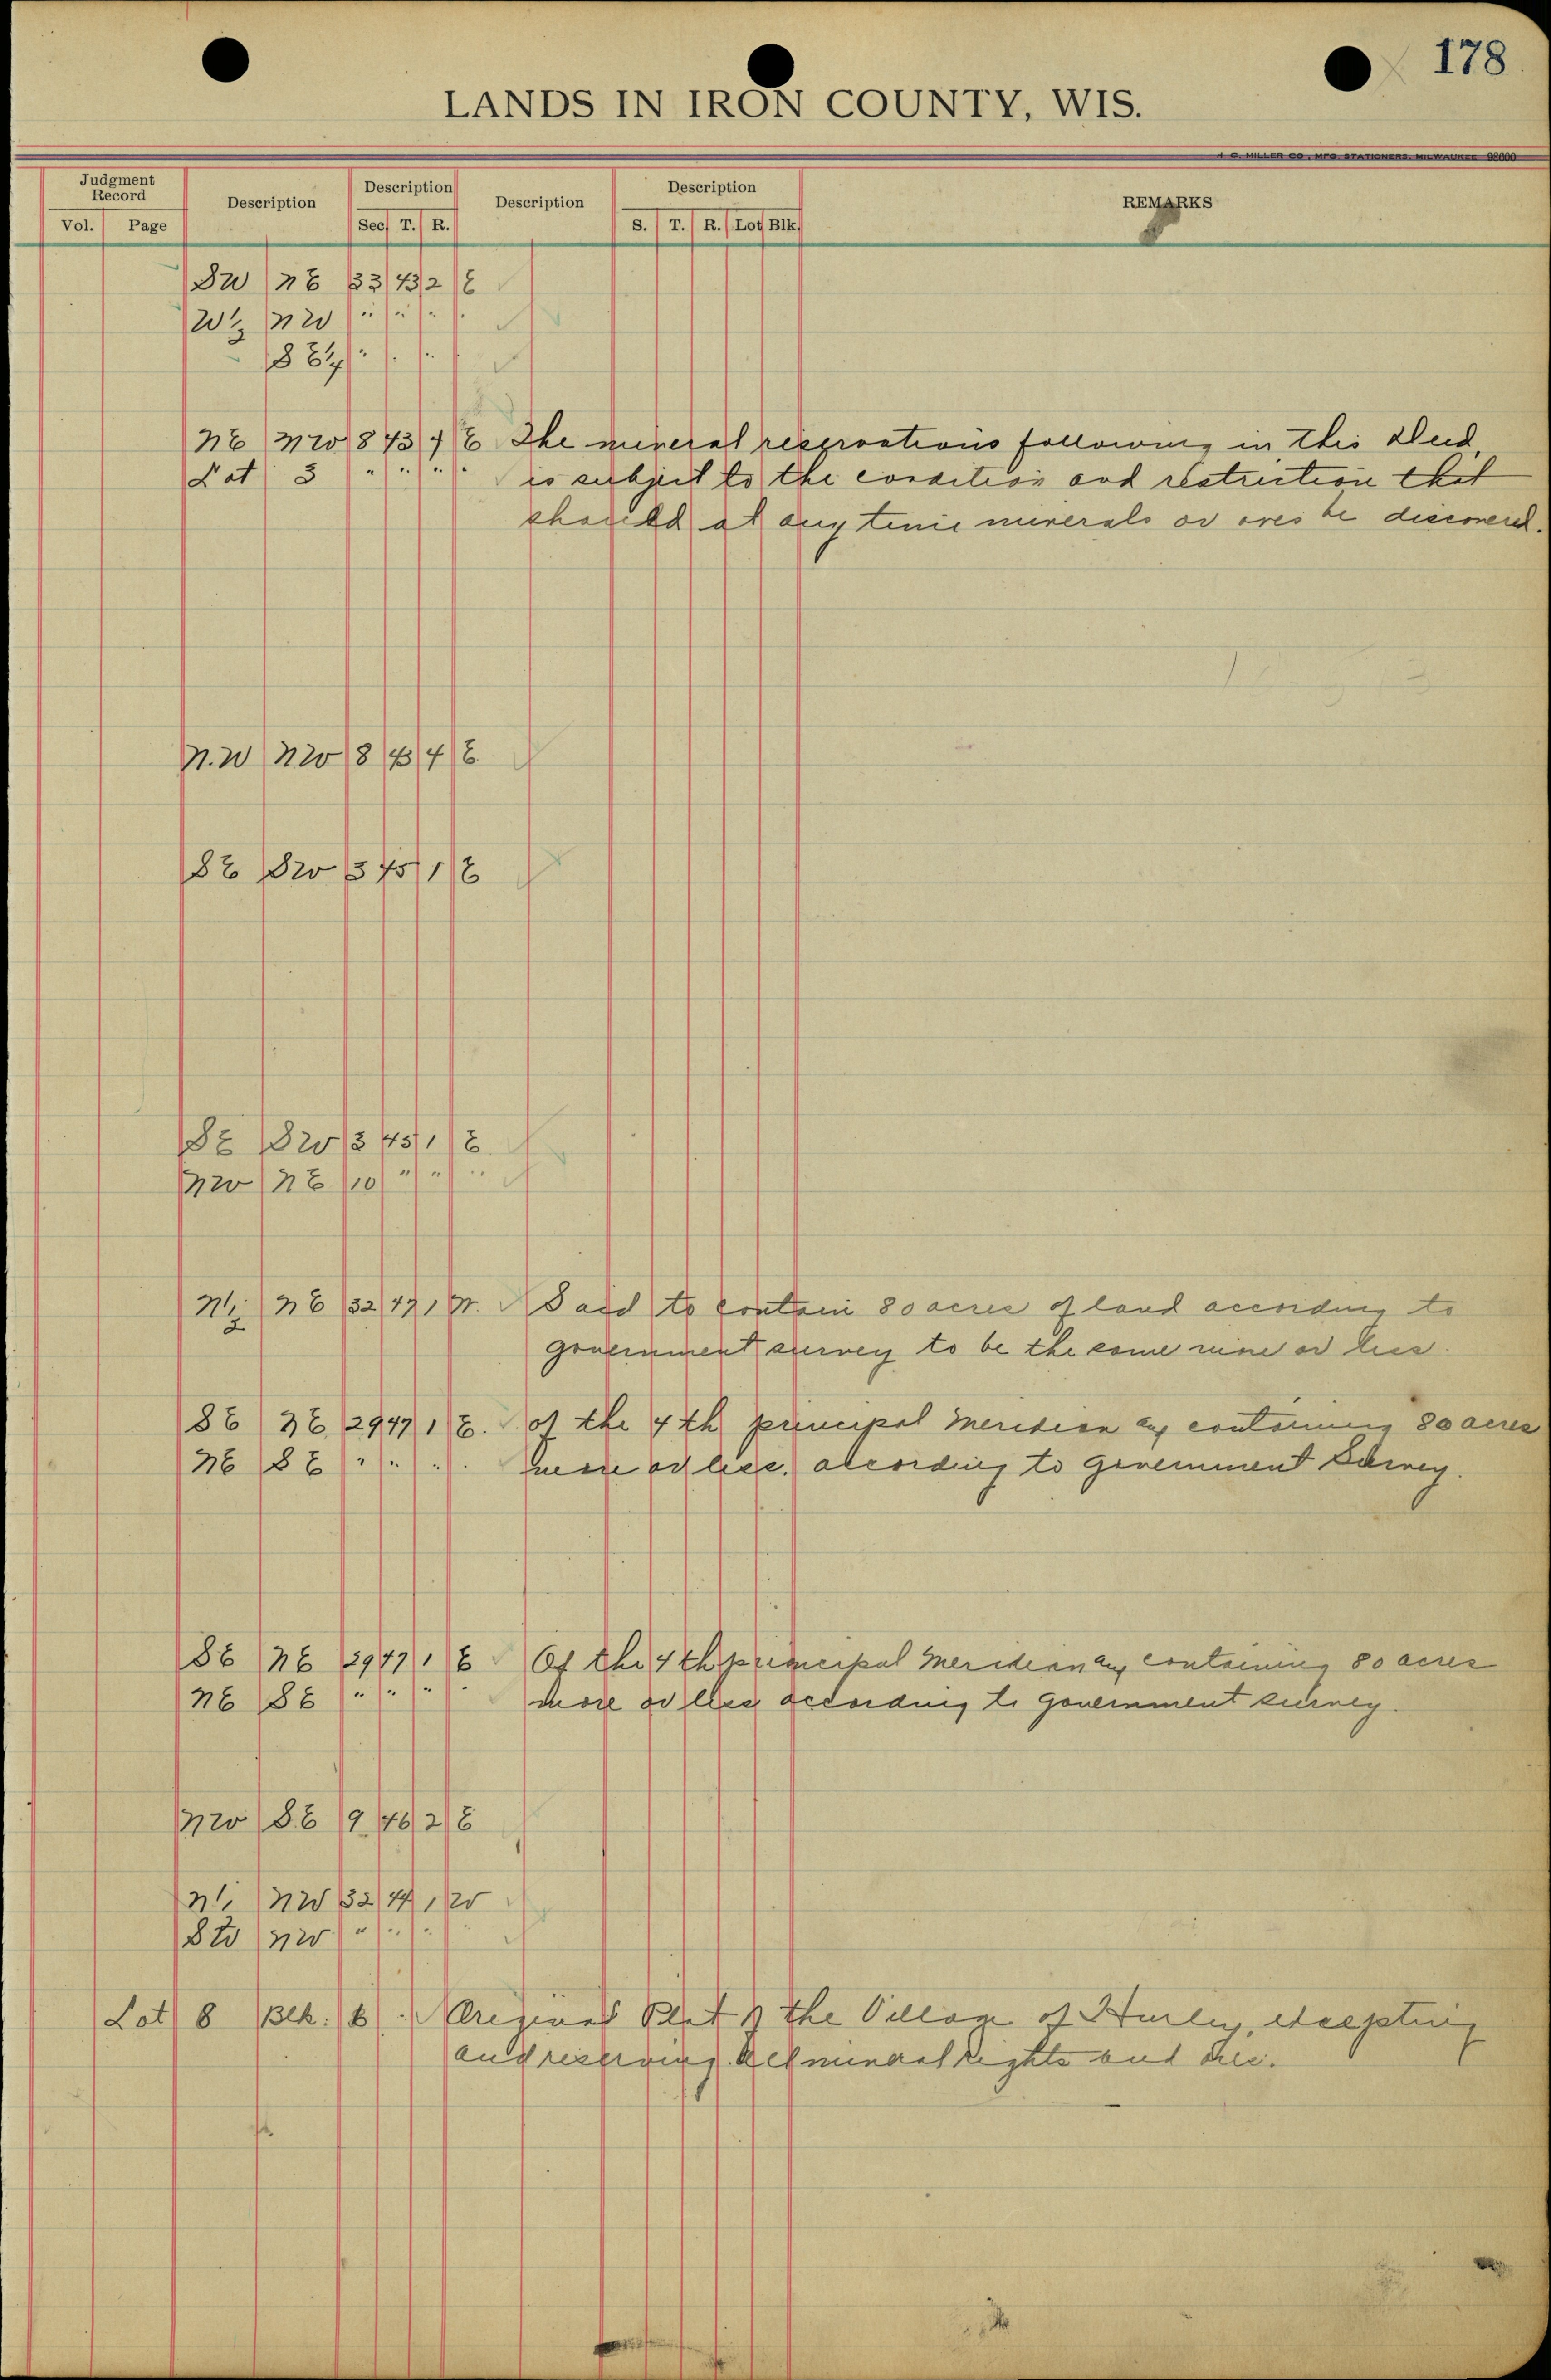 178
LANDS IN IRON COUNTY, WIS.
H. C. MILLER CO., MFG. STATIONERS, MILWAUKEE 98600
Judgment Record Description Description Description Description REMARKS
Vol. Page Sec T. R. S. T. R. Lot Blk
SW NE 33 43 2 E
W½ NW " " " "
SE¼ " " " "
NE NW 8 43 4 E The mineral reservations following in this Deed,
Lot 3 " " " " is subject to the condition and restriction that
should at any time minerals or ores be discovered.
N.W NW 8 43 4 E
SE SW 3 45 1 E
SE SW 3 45 1 E.
NW NE 10 " " "
N½ NE 32 47 1 W. Said to contain 80 acres of land according to
government survey to be the same more or less.
SE NE 29 47 1 E. of the 4th principal Meridian containing 80 acres
NE SE " " " " more or less, according to Government Survey.
SE NE 29 47 1 E Of the 4th principal Meridian containing 80 acres
NE SE " " " " more or less according to Government survey.
NW SE 9 46 2 E
N½ NW 32 44 1 W
SW NW " " " "
Lot 8 Blk. 6 Original Plat of the Village of Hurley, excepting
and reserving all mineral rights and